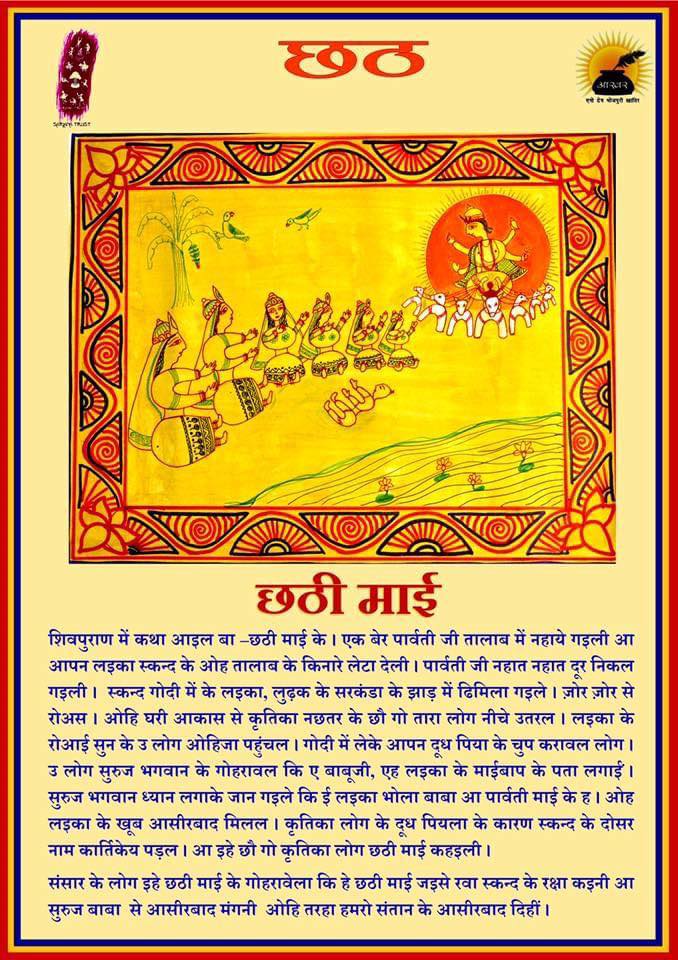 छठ
SARJANA TRUST
आखर
एगो डेग भोजपुरी खातिर
छठी माई
शिवपुराण में कथा आइल बा –छठी माई के। एक बेर पार्वती जी तालाब में नहाये गइली आ
आपन लइका स्कन्द के ओह तालाब के किनारे लेटा देली। पार्वती जी नहात नहात दूर निकल
गइली। स्कन्द गोदी में के लइका, लुढ़क के सरकंडा के झाड़ में ढिमिला गइले। ज़ोर ज़ोर से
रोअस। ओहि घरी आकास से कृतिका नछतर के छौ गो तारा लोग नीचे उतरल। लइका के
रोआई सुन के उ लोग ओहिजा पहुंचल। गोदी में लेके आपन दूध पिया के चुप करावल लोग।
उ लोग सुरुज भगवान के गोहरावल कि ए बाबूजी, एह लइका के माईबाप के पता लगाईं।
सुरुज भगवान ध्यान लगाके जान गइले कि ई लइका भोला बाबा आ पार्वती माई के ह। ओह
लइका के खूब आसीरबाद मिलल। कृतिका लोग के दूध पियला के कारण स्कन्द के दोसर
नाम कार्तिकेय पड़ल। आ इहे छौ गो कृतिका लोग छठी माई कहइली।
संसार के लोग इहे छठी माई के गोहरावेला कि हे छठी माई जइसे रवा स्कन्द के रक्षा कइनी आ
सुरुज बाबा से आसीरबाद मंगनी ओहि तरहा हमरो संतान के आसीरबाद दिहीं।